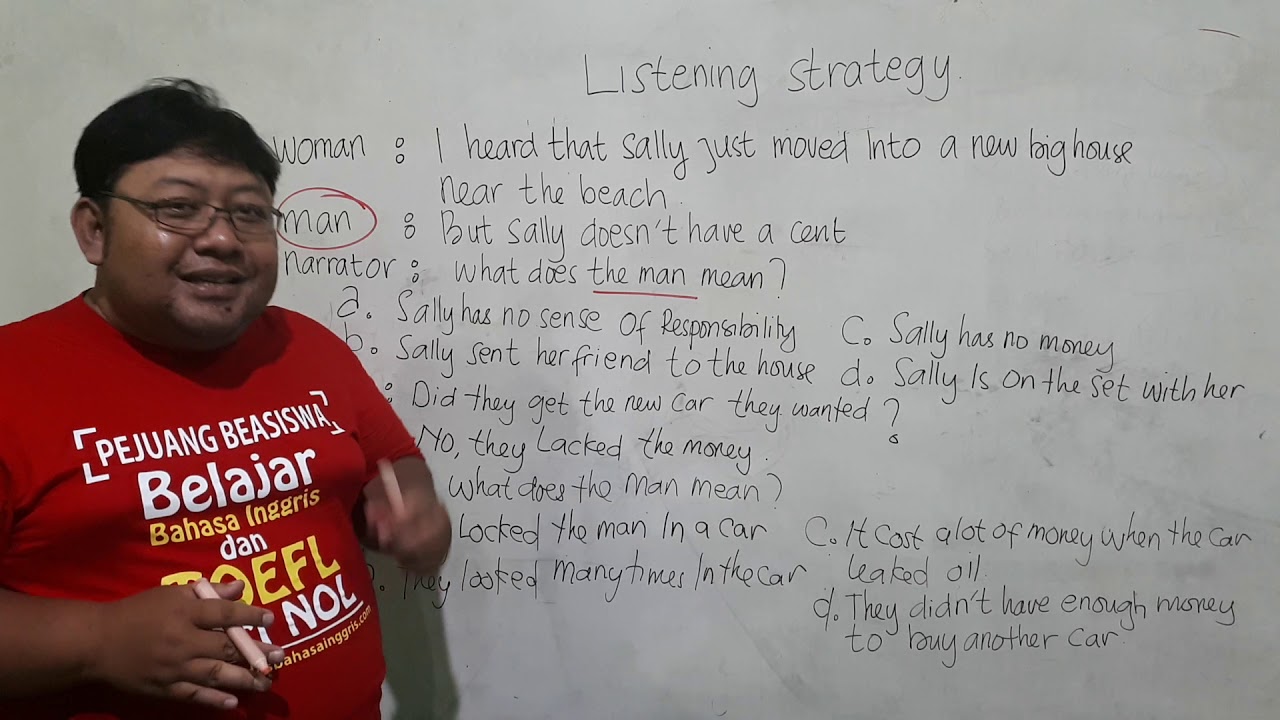 Listening strategy.
woman : I heard that Sally just moved into a new big house
near the beach.
man : But Sally doesn't have a cent
narrator : what does the man mean?
a. Sally has no sense Of Responsibility C. Sally has no money
b. Sally sent her friend to the house d. Sally Is on the set with her
: Did they get the new car they wanted ?
No, they Lacked the money.
What does the man mean?
Locked the man In a car C. It cost a lot of money when the car
They looked many times In the car leaked oil.
d. They didn't have enough money
to buy another car
PEJUANG BEASISWA
Belajar
Bahasa Inggris
dan
TOEFL
NOL
bahasainggris.com